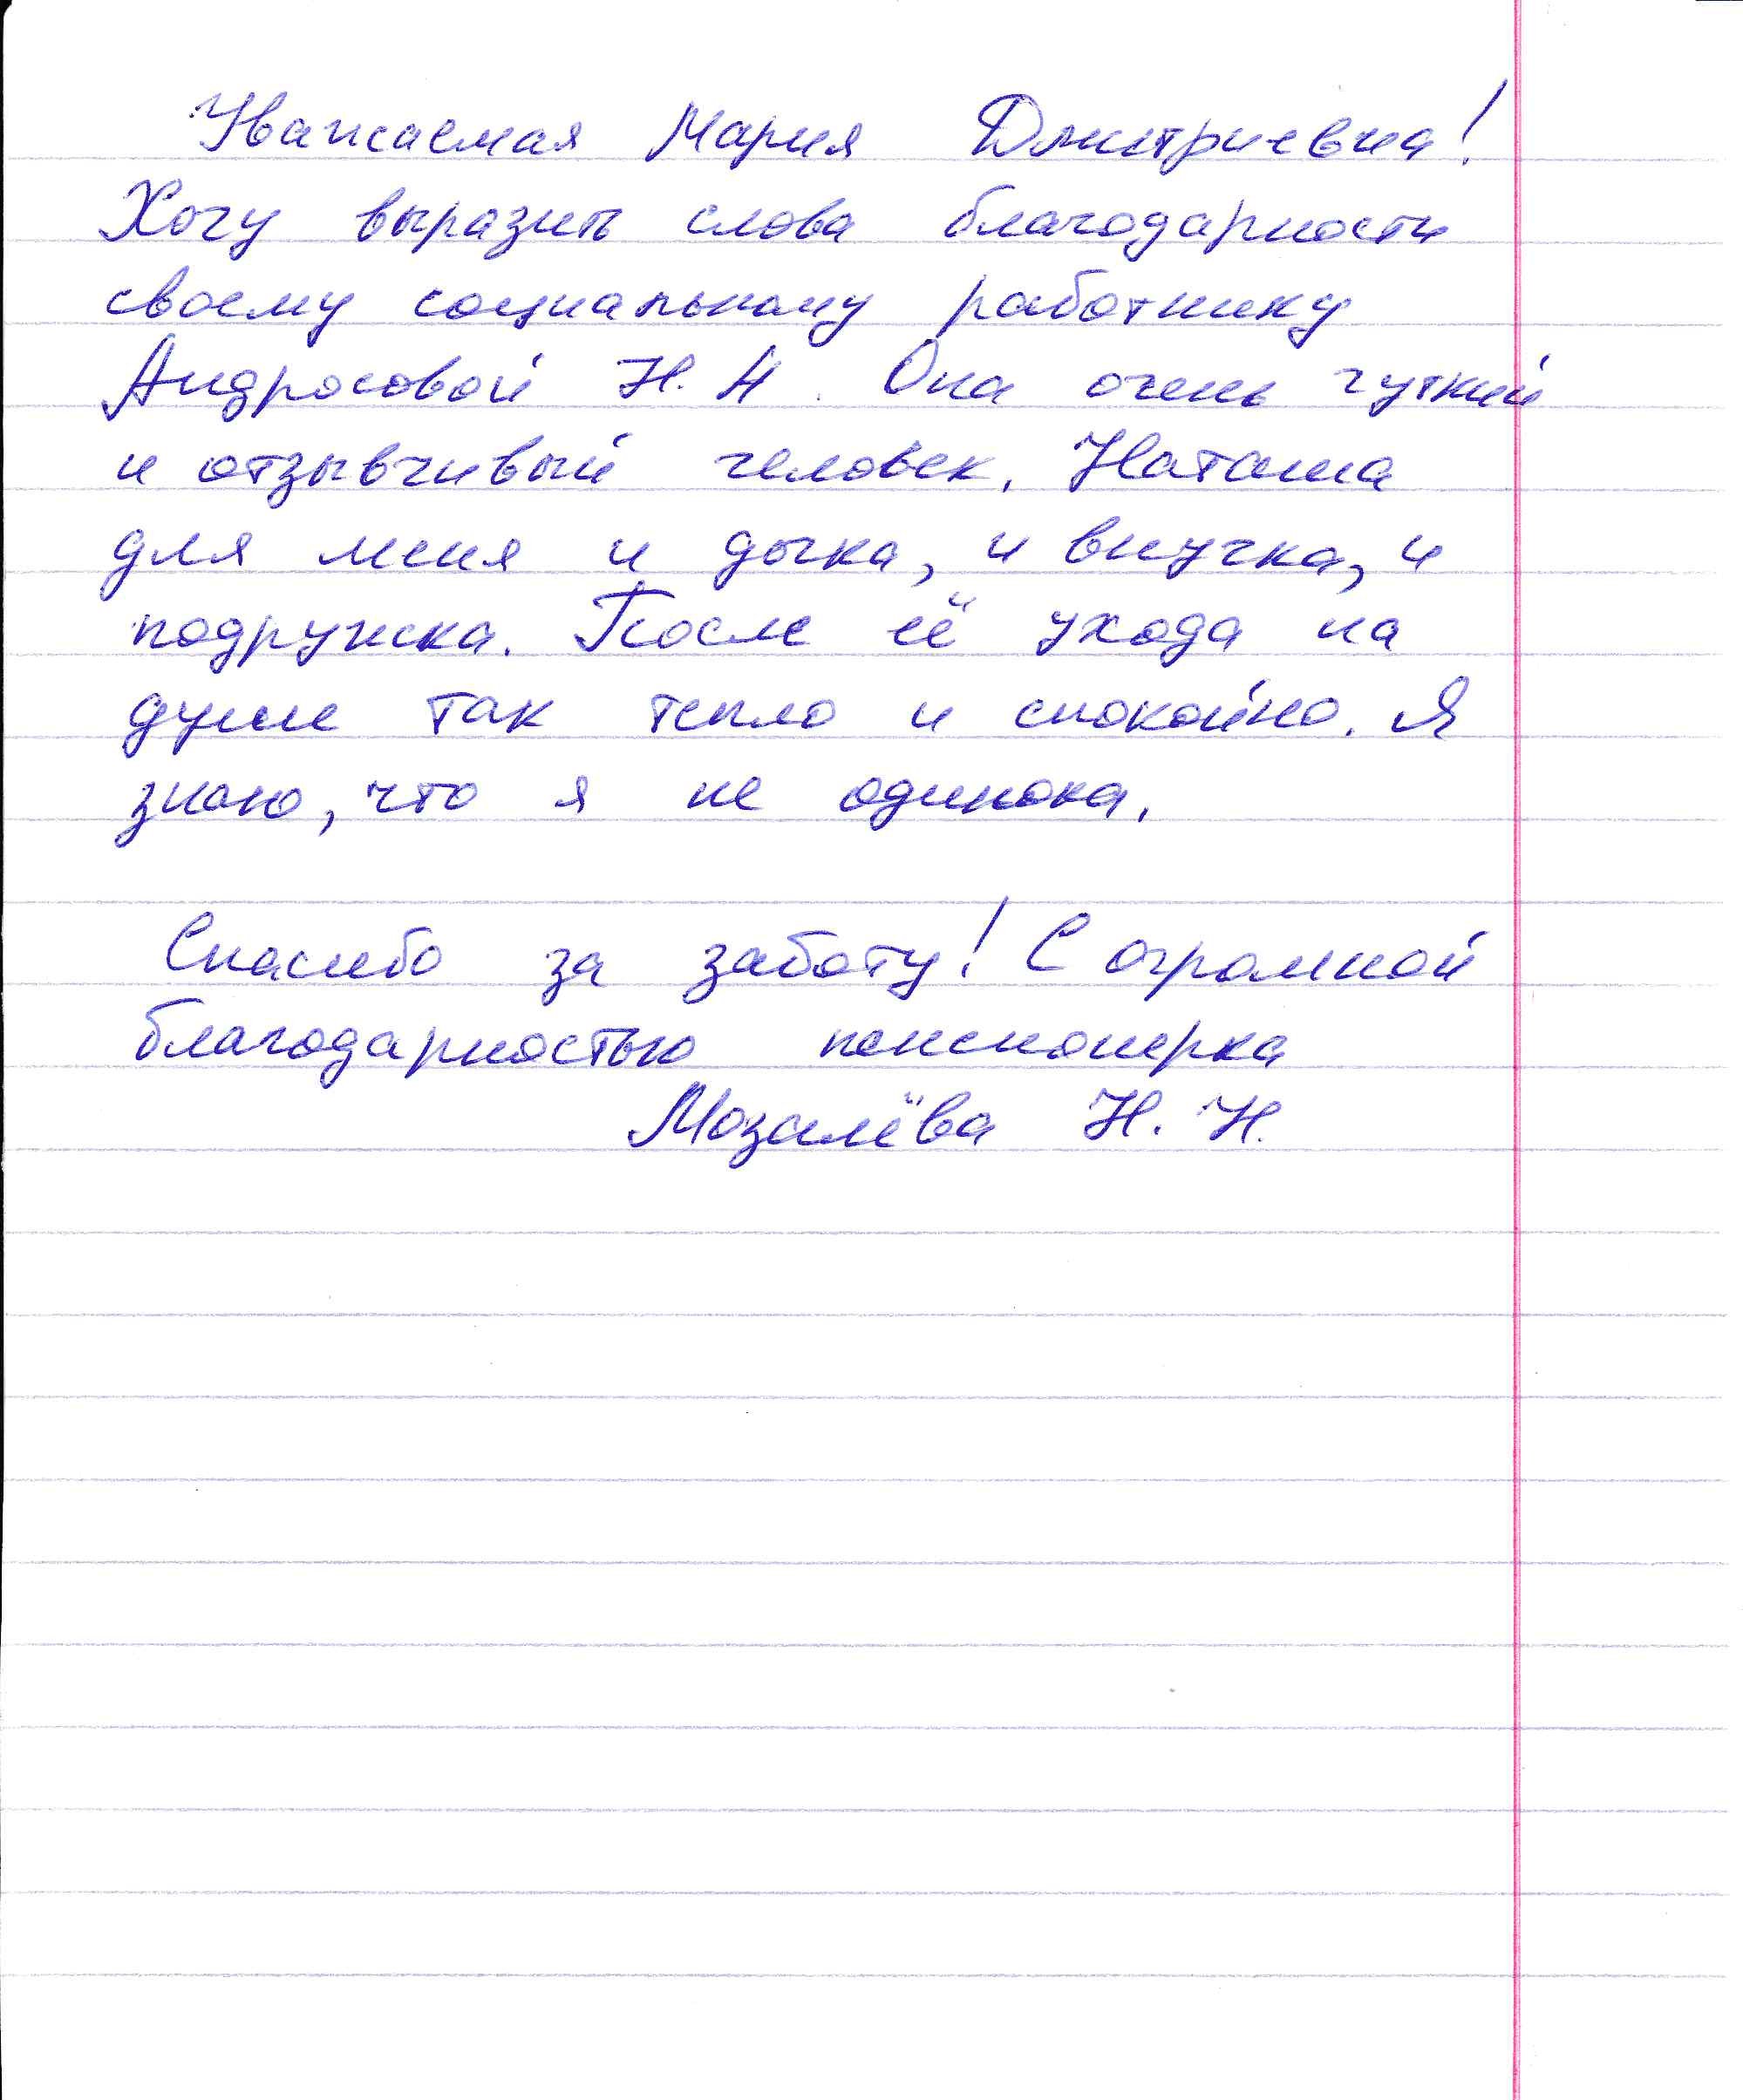 Уважаемая Мария Дмитриевна!
Хочу выразить слова благодарности
своему социальному работнику
Андросовой Н. А. Она очень чуткий
и отзывчивый человек. Наташа
для меня и дочка, и внучка, и
подружка. После её ухода на
душе так тепло и спокойно. Я
знаю, что я не одинока.
Спасибо за заботу! С огромной
благодарностью пенсионерка
Мозалёва Н. Н.